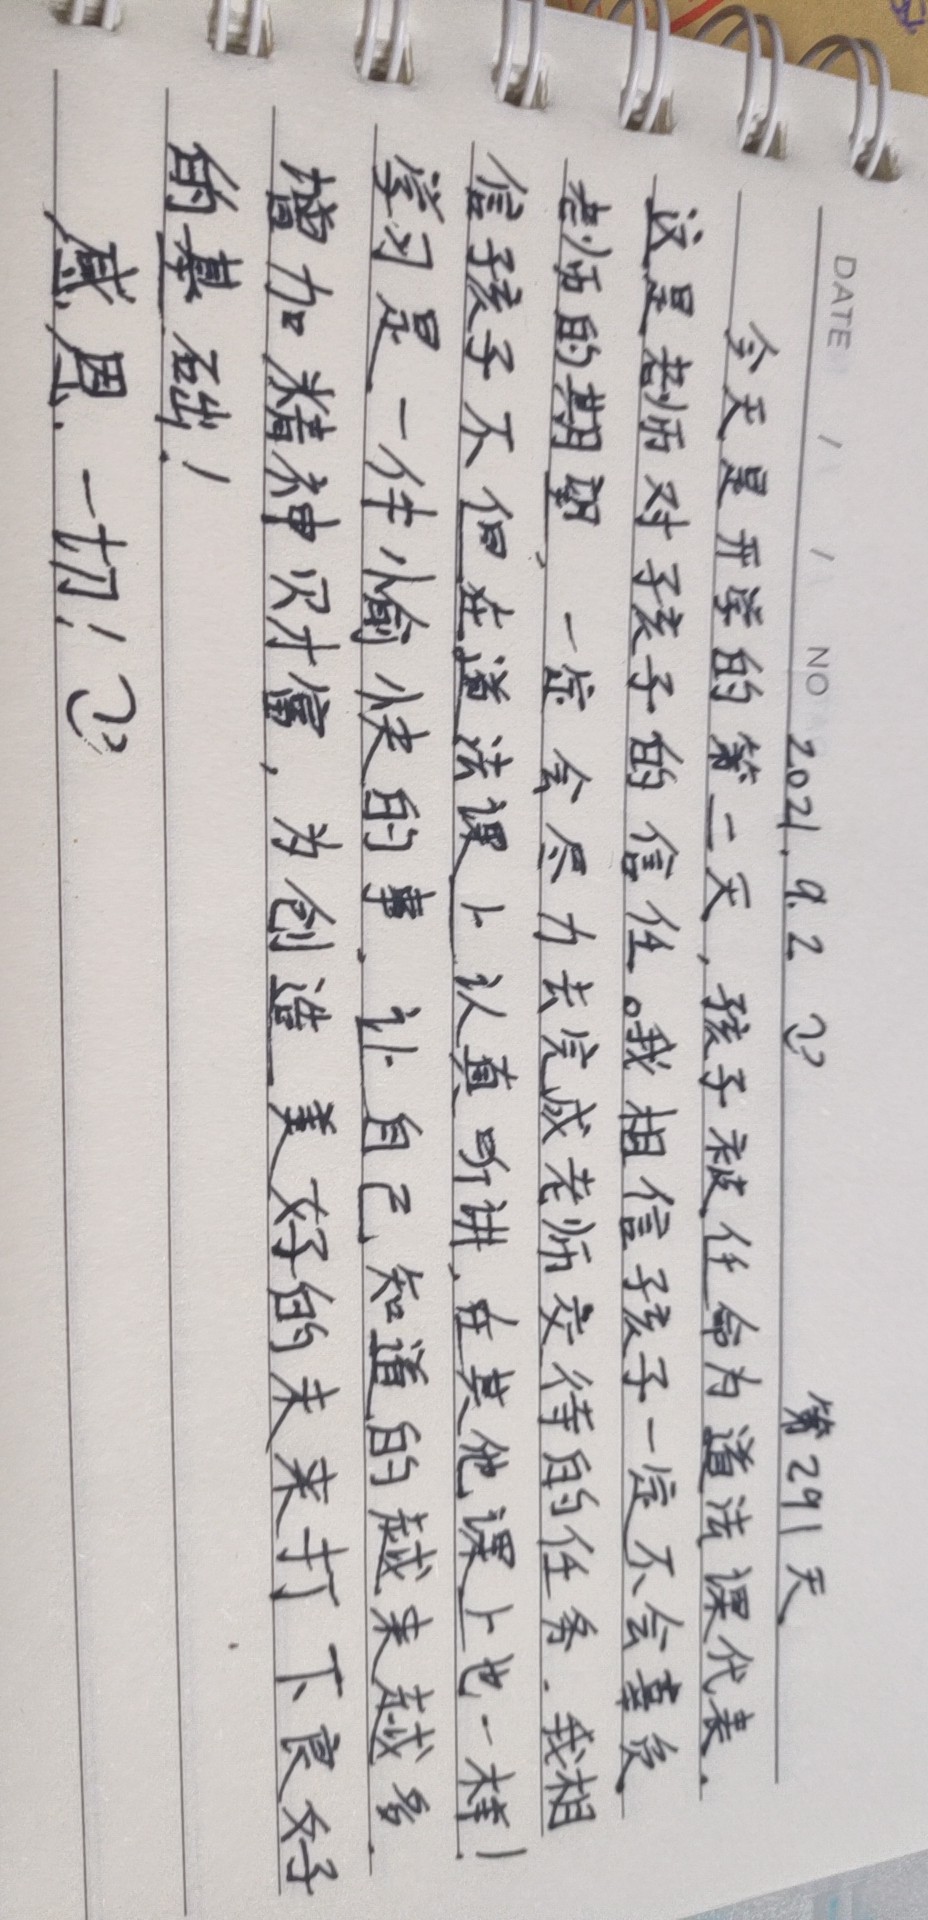 DATE / / NO
2021.9.2 第291天
今天是开学的第二天，孩子被任命为道法课代表.
这是老师对子孩子的信任。我相信孩子一定不会辜负
老师的期望，一定会尽力去完成老师交待的任务.我相
信孩子不但在道法课上认真听讲,在其他课上也一样!
学习是一件愉快的事.让自己知道的越来越多.
增加精神财富,为创造美好的未来打下良好
的基础!
感恩一切!